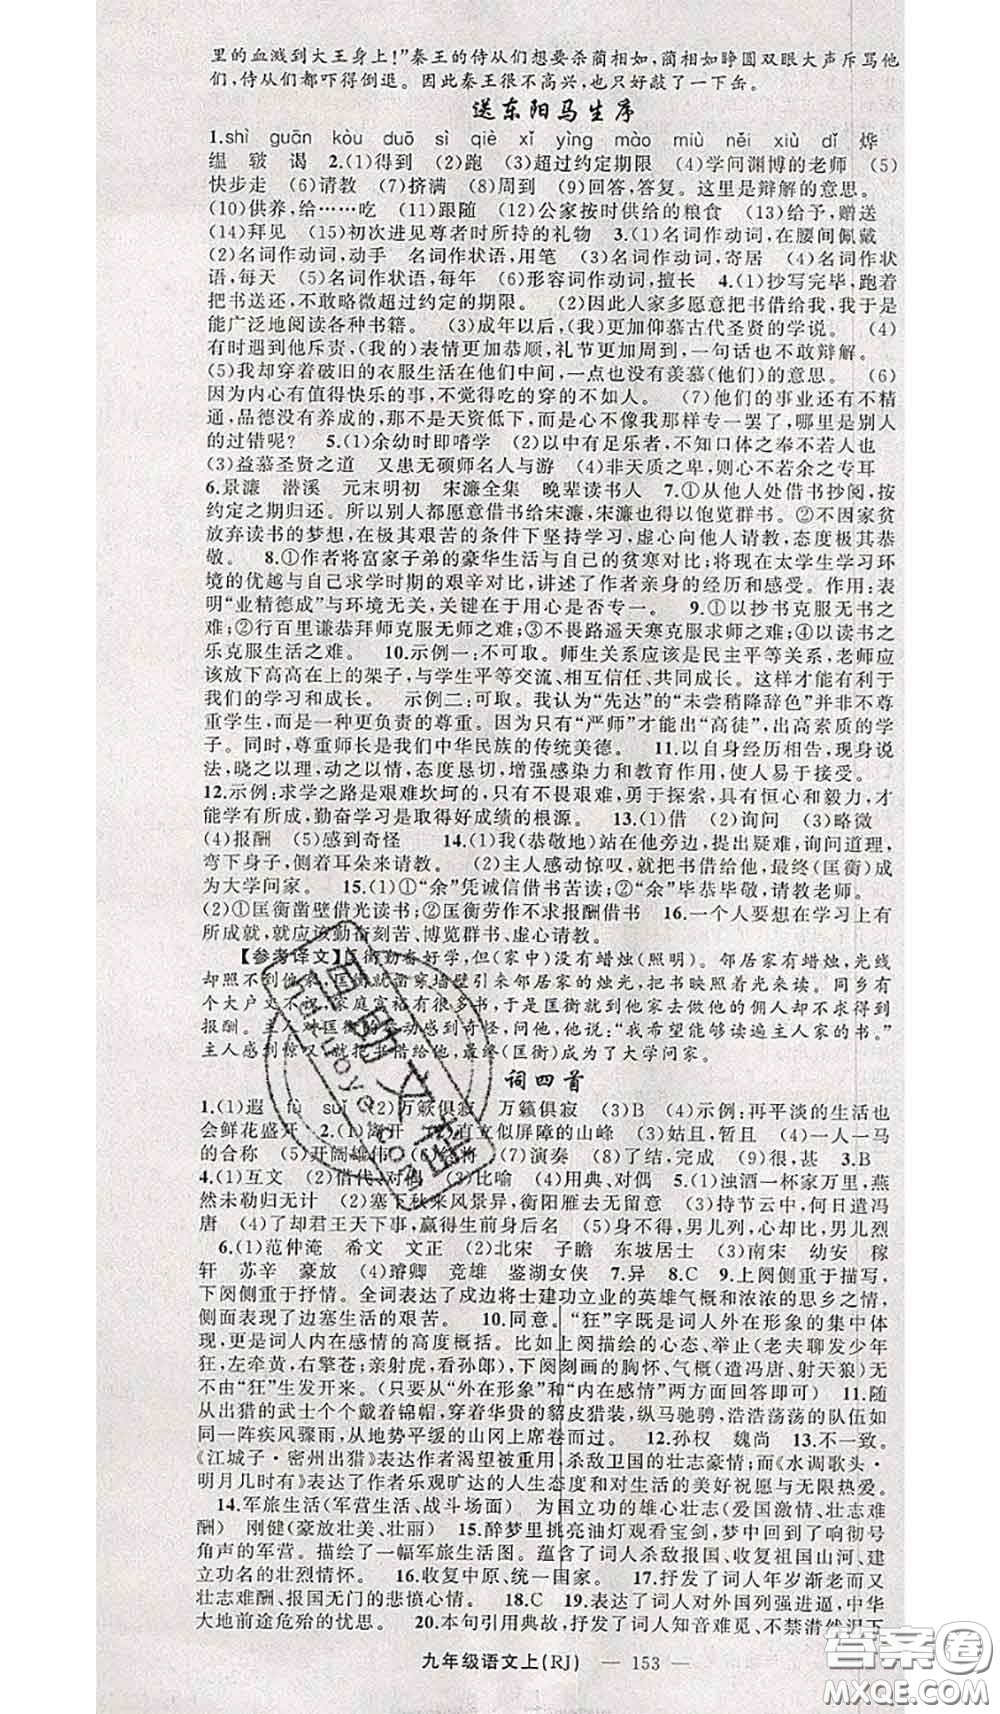 里的血溅到大王身上!”秦王的侍从们想要杀蔺相如,蔺相如睁圆双眼大声斥骂他
们,侍从们都吓得倒退。因此秦王很不高兴,也只好敲了一下缶。
送东阳马生序
1.shì guān kòu duō sì qiè xǐ yìng mào miù něi xiù dǐ 烨
缊 皲 谒 2.(1)得到 (2)跑 (3)超过约定期限 (4)学问渊博的老师 (5)
快步走 (6)请教 (7)挤满 (8)周到 (9)回答,答复。这里是辩解的意思。
(10)供养,给……吃 (11)跟随 (12)公家按时供给的粮食 (13)给予,赠送
(14)拜见 (15)初次进见尊者时所持的礼物 3.(1)名词作动词,在腰间佩戴
(2)名词作动词,动手 名词作状语,用笔 (3)名词作动词,寄居 (4)名词作状
语,每天 (5)名词作状语,每年 (6)形容词作动词,擅长 4.(1)抄写完毕,跑着
把书送还,不敢略微超过约定的期限。 (2)因此人家多愿意把书借给我,我于是
能广泛地阅读各种书籍。 (3)成年以后,(我)更加仰慕古代圣贤的学说。 (4)
有时遇到他斥责,(我的)表情更加恭顺,礼节更加周到,一句话也不敢辩解。
(5)我却穿着破旧的衣服生活在他们中间,一点也没有羡慕(他们)的意思。 (6)
因为内心有值得快乐的事,不觉得吃的穿的不如人。 (7)他们的事业还有不精
通,品德没有养成的,那不是天资低下,而是心不像我那样专一罢了,哪里是别人
的过错呢? 5.(1)余幼时即嗜学 (2)以中有足乐者,不知口体之奉不若人也
(3)益慕圣贤之道 又患无硕师名人与游 (4)非天质之卑,则心不若余之专耳
6.景濂 潜溪 元末明初 宋濂全集 晚辈读书人 7.①从他人处借书抄阅,按
约定之期归还。所以别人都愿意借书给宋濂,宋濂也得以饱览群书。②不因家贫
放弃读书的梦想,在极其艰苦的条件下坚持学习,虚心向他人请教,态度极其恭
敬。 8.①作者将富家子弟的豪华生活与自己的贫寒对比;将现在太学生学习环
境的优越与自己求学时期的艰辛对比,讲述了作者亲身的经历和感受。作用:表
明“业精德成”与环境无关,关键在于用心是否专一。 9.①以抄书克服无书之
难;②行百里谦恭拜师克服无师之难;③不畏路遥天寒克服求师之难;④以读书之
乐克服生活之难。 10.示例一:不可取。师生关系应该是民主平等关系,老师应
该放下高高在上的架子,与学生平等交流、相互信任、共同成长。这样才能有利于
我们的学习和成长。 示例二:可取。我认为“先达”的“未尝稍降辞色”并非不尊
重学生,而是一种更负责的尊重。因为只有“严师”才能出“高徒”,出高素质的学
子。同时,尊重师长是我们中华民族的传统美德。 11.以自身经历相告,现身说
法,晓之以理,动之以情,态度恳切,增强感染力和教育作用,使人易于接受。
12.示例:求学之路是艰难坎坷的,只有不畏艰难,勇于探索,具有恒心和毅力,才能
学有所成,勤奋学习是取得好成绩的根源。 13.(1)借 (2)询问 (3)略微
(4)报酬 (5)感到奇怪 14.(1)我(恭敬地)站在他旁边,提出疑难,询问道理,
弯下身子,侧着耳朵来请教。 (2)主人感动惊叹,就把书借给他,最终(匡衡)成
为大学问家。 15.(1)①“余”凭诚信借书苦读;②“余”毕恭毕敬,请教老师。
(2)①匡衡凿壁借光读书;②匡衡劳作不求报酬借书 16.一个人要想在学习上有
所成就,就应该勤奋刻苦、博览群书、虚心请教。
【参考译文】匡衡勤奋好学,但(家中)没有蜡烛(照明)。邻居家有蜡烛,光线
却照不到他家,匡衡就凿穿墙壁引来邻居家的烛光,把书映照着光来读。同乡有
个大户文不识,家庭富裕有很多书,于是匡衡就到他家去做他的佣人却不求得到
报酬。主人对匡衡的举动感到奇怪,问他,他说:“我希望能够读遍主人家的书。”
主人感到惊叹,就把书借给他,最终(匡衡)成为了大学问家。
词四首
1.(1)遐 fù suǐ (2)万籁俱寂 万籁俱寂 (3)B (4)示例:再平淡的生活也
会鲜花盛开 2.(1)离开 (2)直立似屏障的山峰 (3)姑且,暂且 (4)一人一马
的合称 (5)开阔雄伟 (6)给将 (7)演奏 (8)了结,完成 (9)很,甚 3.B
4.(1)互文 (2)借代、对偶 (3)比喻 (4)用典、对偶 5.(1)浊酒一杯家万里,燕
然未勒归无计 (2)塞下秋来风景异,衡阳雁去无留意 (3)持节云中,何日遣冯
唐 (4)了却君王天下事,赢得生前身后名 (5)身不得,男儿列,心却比,男儿烈
6.(1)范仲淹 希文 文正 (2)北宋 子瞻 东坡居士 (3)南宋 幼安 稼
轩 苏辛 豪放 (4)璿卿 竞雄 鉴湖女侠 7.异 8.C 9.上阕侧重于描写,
下阕侧重于抒情。全词表达了戍边将士建功立业的英雄气概和浓浓的思乡之情,
侧面表现了边塞生活的艰苦。 10.同意。“狂”字既是词人外在形象的集中体
现,更是词人内在感情的高度概括。比如上阕描绘的心态、举止(老夫聊发少年
狂,左牵黄,右擎苍;亲射虎,看孙郎),下阕刻画的胸怀、气概(遣冯唐、射天狼)无
不由“狂”生发开来。(只要从“外在形象”和“内在感情”两方面回答即可) 11.随
从出猎的武士个个戴着锦帽,穿着华贵的貂皮猎装,纵马驰骋,浩浩荡荡的队伍如
同一阵疾风骤雨,从地势平缓的山冈上席卷而过。 12.孙权 魏尚 13.不一致。
《江城子·密州出猎》表达作者渴望被重用,杀敌卫国的壮志豪情;而《水调歌头·
明月几时有》表达了作者乐观旷达的人生态度和对生活的美好祝愿与无限热爱。
14.军旅生活(军营生活、战斗场面) 为国立功的雄心壮志(爱国激情、壮志难
酬) 刚健(豪放壮美、壮丽) 15.醉梦里挑亮油灯观看宝剑,梦中回到了响彻号
角声的军营。描绘了一幅军旅生活图。蕴含了词人杀敌报国、收复祖国山河、建
立功名的壮烈情怀。 16.收复中原、统一国家。 17.抒发了词人年岁渐老而又
壮志难酬、报国无门的悲愤心情。 18.C 19.表达了词人对外国列强进逼,中华
大地前途危殆的忧思。 20.本句引用典故,抒发了词人知音难觅,不禁潸然泪下
九年级语文上(RJ) — 153 —
答案圈
MXQE.COM